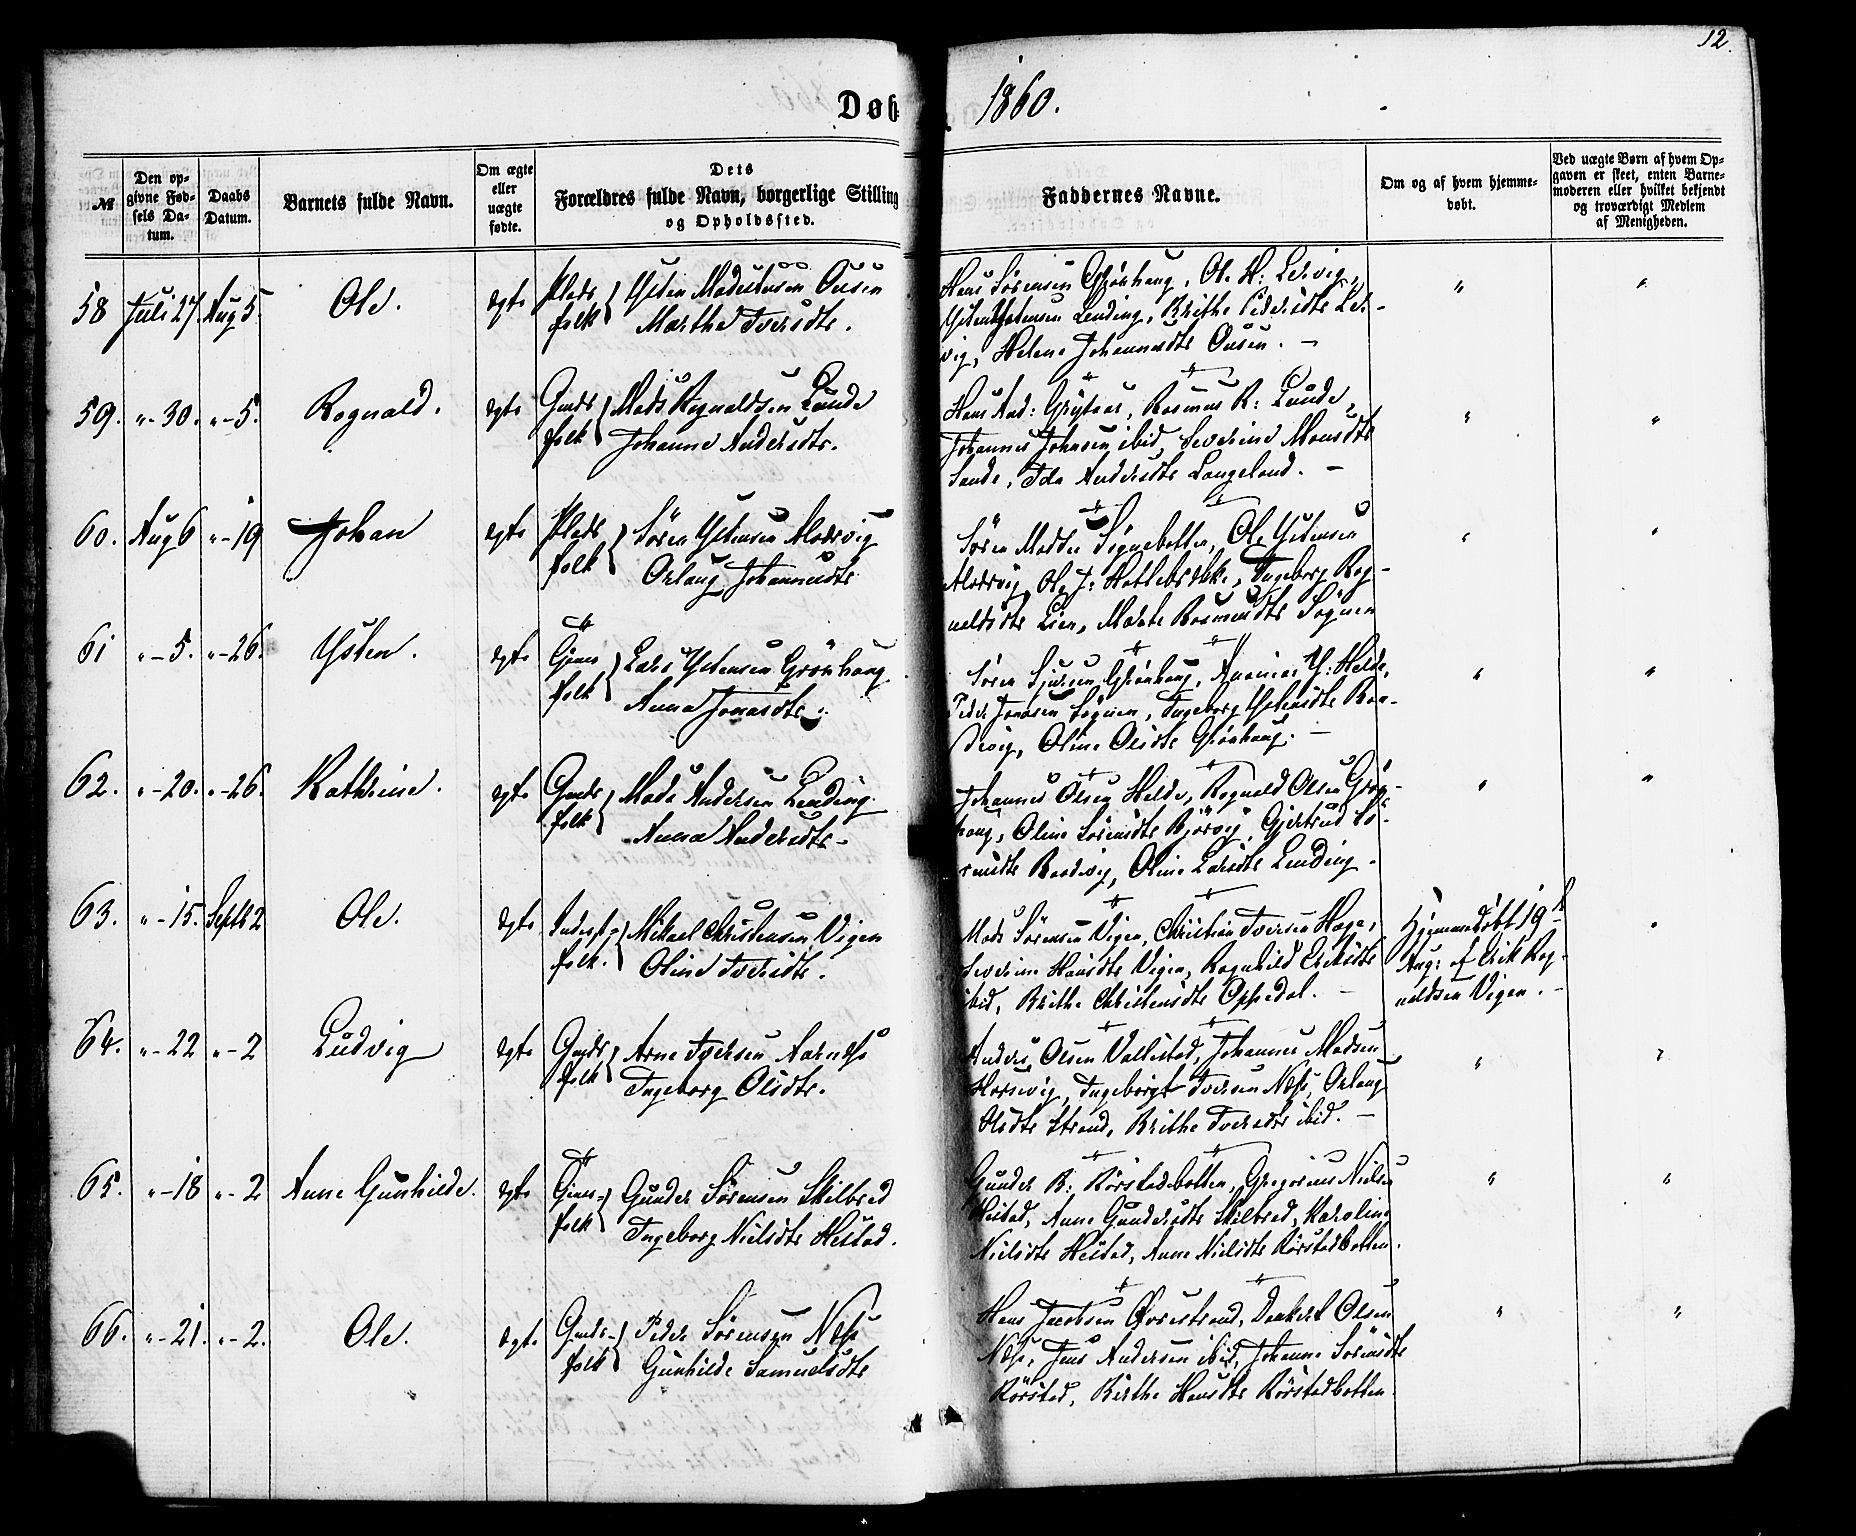 12.
Døb
1860.
№
Den op-
givne Fød-
sels Da-
tum.
Daabs
Datum.
Barnets fulde Navn.
Om ægte
eller
uægte
fødte.
Dets
Forældres fulde Navn, borgerlige Stilling
og Opholdssted.
Faddernes Navne.
Om og af hvem hjemme-
døbt.
Ved uægte Børn af hvem Op-
gaven er skeet, enten Barne-
moderen eller hvilket bekjendt
og troværdigt Medlem
af Menigheden.
58 Juli 27. Aug 5. Ole. ægte Plads folk Ysten Ousen
Marthe Iversdtr.
Hans Sörensen Grönhaug, Ole H:
Ystensen Lending, Brithe Pedersdtr Ler-
vig, Helene Johannesdtr Ousen. —
59. " - 30. " - 5. Rognald. ægte Gaards folk Mads Rognaldsen Lunde
Johanne Andersdtr.
Hans And: Grytaas, Rasmus R: Lunde,
Johannes Johnsen ibid, Severine Monsdtr
Sande, Ida Andersdtr Langeland. —
60. Aug 6 " - 19 Johan ægte Plads folk Sören Ystensen
Orlaug Johannesdtr
Sören Madsen Sögnebotten, Ole Ystensen
Ole J: Ingeborg Rog-
naldsdtr Lien, Marte Rasmusdtr Sögnen
61 " - 5. " - 26. Ysten. ægte Gjmd folk Lars Ystensen Grönhaug
Anna Jonasdtr.
Sören Sjursen Grönhaug, Y: Helde,
Peder Jonasen Sögnen, Ingeborg Ystensdtr Baa-
devig, Oline Olsdtr Grönhaug. —
62. " - 20. " - 26. Kathrine. ægte Gaards folk Mads Andersen Lending.
Anna Andersdtr -
Johannes Olsen Helde, Rognald Olsen Grön-
haug, Oline Sörensdtr Björvig, Gjertrud Sö-
rensdtr Baadevig, Oline Larsdtr Lending.
63. " - 15. Septb 2 Ole. ægte Inderst folk. Mikael Christensen Vigen
Oline Iversdtr.
Mads Sörensen Vigen, Christian Iversen Hage,
Severine Hansdtr Vigen, Rognhild Eriksdtr
ibid, Brithe Christensdtr Oppedal. —
Hjemmedöbt 19de
Aug: af Erik Rog-
naldsen Vigen. —
64. " - 22 " - 2 Ludvig ægte Gaards folk Arne Iversen Aarnæs
Ingeborg Olsdtr.
Anders Olsen Vallestad, Johannes Madsen
Horsevig, Ingeborg Iversen Næss, Orlaug
Olsdtr Strand, Brithe Iversdtr ibid. —
65. " - 18 " - 2 Anne Gunhilde. ægte folk Gunder Sörensen Skilbred
Ingeborg Nielsdtr Hestad.
Gunder R: Rörstadbotten, Gregorius Nielsen
Hestad, Anne Gundersdtr Skilbred, Karoline
Nielsdtr Hestad, Anne Nielsdtr Rörstadbotten.
66. " - 21. " - 2. Ole. ægte Gaards- folk Peder Sörensen Næss
Gunhilde Samuelsdtr
Hans Jacobsen Øvrestrand, Dankert Olsen
Næss, Jens Andersen ibid, Johanne Sörensdtr
Rörstad, Birthe Hansdtr Rörstadbotten.